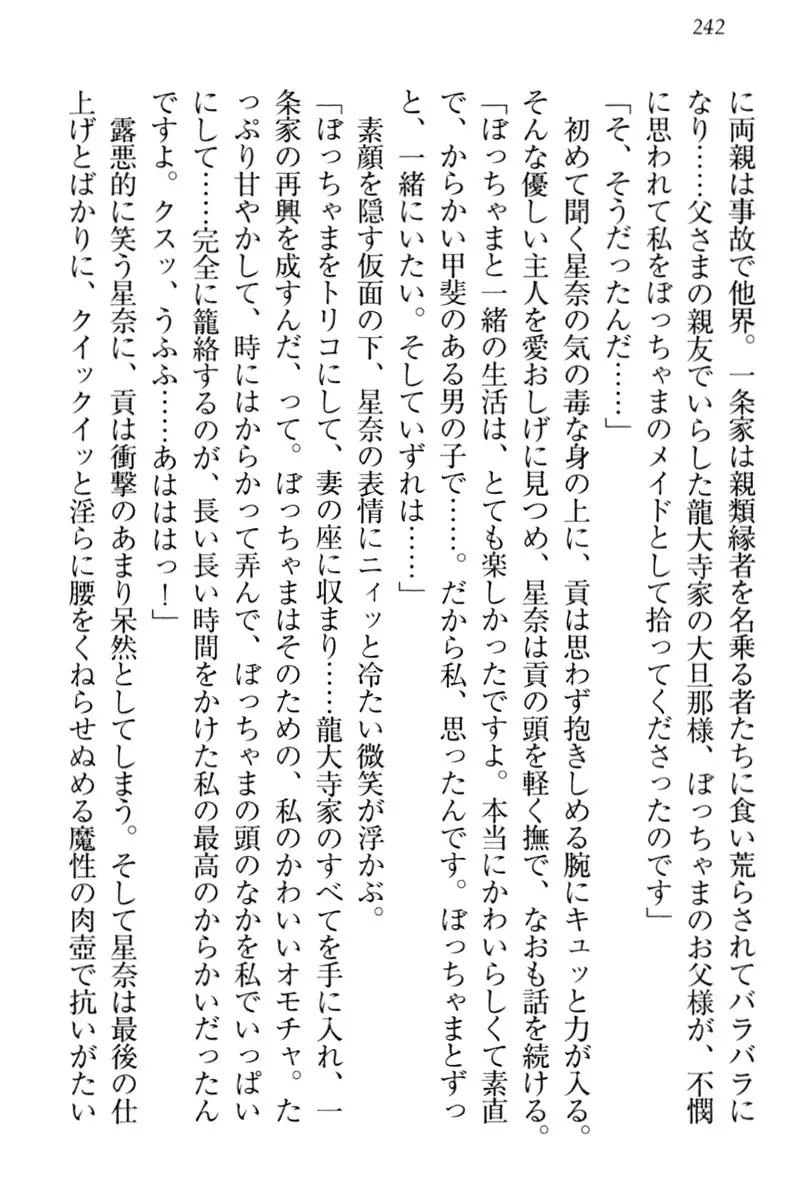 242
に両親は事故で他界。一条家は親類縁者を名乗る者たちに食い荒らされてバラバラに
なり……父さまの親友でいらした龍大寺家の大旦那様、ぼっちゃまのお父様が、不憫
に思われて私をぼっちゃまのメイドとして拾ってくださったのです」
「そ、そうだったんだ……」
初めて聞く星奈の気の毒な身の上に、貢は思わず抱きしめる腕にキュッと力が入る。
そんな優しい主人を愛おしげに見つめ、星奈は貢の頭を軽く撫で、なおも話を続ける。
「ぼっちゃまと一緒の生活は、とても楽しかったですよ。本当にかわいらしくて素直
で、からかい甲斐のある男の子で……。だから私、思ったんです。ぼっちゃまとずっ
と、一緒にいたい。そしていずれは……」
素顔を隠す仮面の下、星奈の表情にニィッと冷たい微笑が浮かぶ。
「ぼっちゃまをトリコにして、妻の座に収まり……龍大寺家のすべてを手に入れ、一
条家の再興を成すんだ、って。ぼっちゃまはそのための、私のかわいいオモチャ。た
っぷり甘やかして、時にはからかって弄んで、ぼっちゃまの頭のなかを私でいっぱい
にして……完全に籠絡するのが、長い長い時間をかけた私の最高のからかいだったん
ですよ。クスッ、うふふ……あはははっ!」
露悪的に笑う星奈に、貢は衝撃のあまり呆然としてしまう。そして星奈は最後の仕
上げとばかりに、クイックイッと淫らに腰をくねらせぬめる魔性の肉壺で抗いがたい